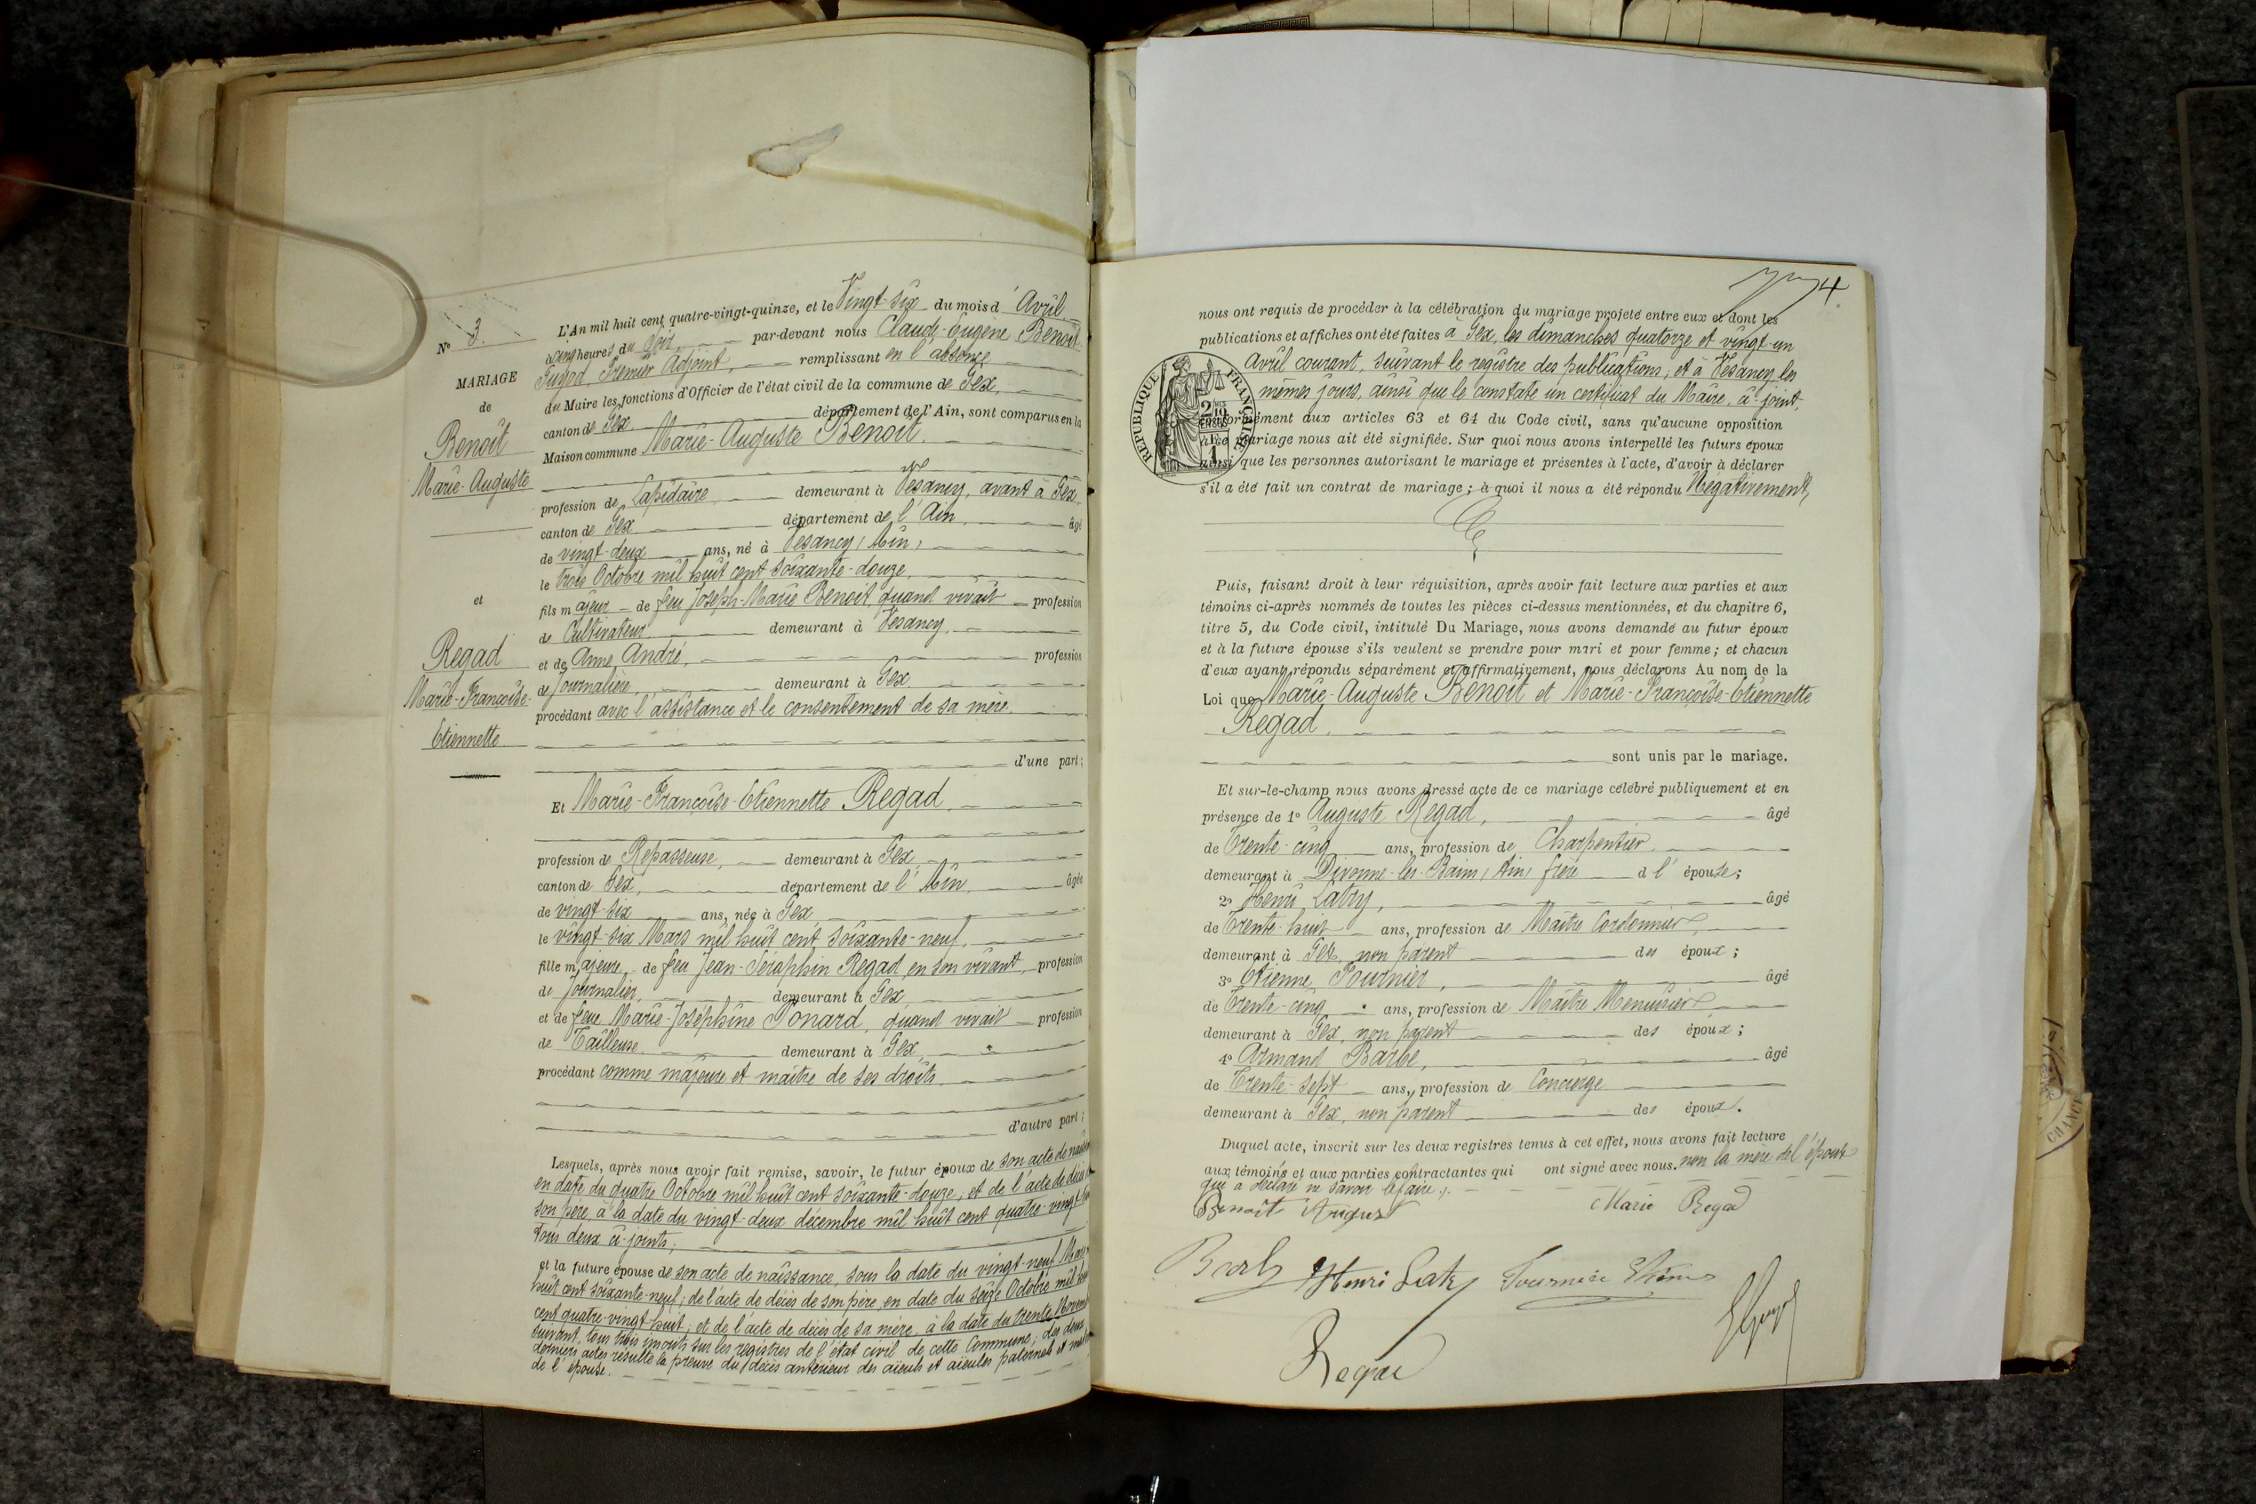 N° 3.
MARIAGE
de
Benoît
Marie-Auguste
et
Regad
Marie-Françoise-
Etiennette
L'An mil huit cent quatre-vingt-quinze, et le Vingt-six du mois d'Avril
à cinq heures du soir, par-devant nous Claude-Eugène Benoît
Premier Adjoint, remplissant en l'absence
du Maire les fonctions d'Officier de l'état civil de la commune de Gex,
canton de Gex département de l'Ain, sont comparus en la
Maison commune Marie-Auguste Benoît.
profession de Lapidaire demeurant à Vesancy, avant à Gex
canton de Gex département de l'Ain, âgé
de vingt-deux ans, né à Vesancy (Ain)
le trois Octobre mil huit cent soixante-douze,
fils majeur de feu Joseph-Marie Benoit, quand vivait profession
de Cultivateur demeurant à Vesancy,
et de Anne André, profession
de Journalière, demeurant à Gex
procédant avec l'assistance et le consentement de sa mère.
d'une part;
Et Marie-Françoise-Etiennette Regad.
profession de Repasseuse, demeurant à Gex
canton de Gex, département de l'Ain âgée
de vingt-six ans, née à Gex
le vingt-six Mars mil huit cent soixante-neuf,
fille majeure de feu Jean-Séraphin Regad, en son vivant profession
de Journalier, demeurant à Gex
et de feue Marie-Joséphine Ponard, quand vivait profession
de Tailleuse demeurant à Gex
procédant comme majeure et maître de ses droits.
d'autre part;
Lesquels, après nous avoir fait remise, savoir, le futur époux de son acte de
en date du quatre Octobre mil huit cent soixante-douze; et de l'acte de décès
son père, à la date du vingt-deux décembre mil huit cent quatre-vingt
tous deux ci-joints;
et la future épouse de son acte de naissance, sous la date du vingt-neuf Mars
huit cent soixante-neuf; de l'acte de décès de son père, en date du seize Octobre mil
cent quatre-vingt-huit; et de l'acte de décès de sa mère, à la date du trente
suivant, tous trois inscrits sur les registres de l'état civil de cette Commune; des deux
derniers actes résulte la preuve du décès antérieur des aïeuls et aïeules paternels et
de l'épouse.
4
nous ont requis de procéder à la célébration du mariage projeté entre eux et dont les
publications et affiches ont été faites à Gex, les dimanches quatorze et vingt-un
Avril courant, suivant le registre des publications, et à Vesancy les
mêmes jours, ainsi que le constate un certificat du Maire, ci-joint,
conformément aux articles 63 et 64 du Code civil, sans qu'aucune opposition
au dit mariage nous ait été signifiée. Sur quoi nous avons interpellé les futurs époux
ainsi que les personnes autorisant le mariage et présentes à l'acte, d'avoir à déclarer
s'il a été fait un contrat de mariage; à quoi il nous a été répondu Négativement,
RÉPUBLIQUE FRANÇAISE
Puis, faisant droit à leur réquisition, après avoir fait lecture aux parties et aux
témoins ci-après nommés de toutes les pièces ci-dessus mentionnées, et du chapitre 6,
titre 5, du Code civil, intitulé Du Mariage, nous avons demandé au futur époux
et à la future épouse s'ils veulent se prendre pour mari et pour femme; et chacun
d'eux ayant répondu séparément et affirmativement, nous déclarons Au nom de la
Loi que Marie-Auguste Benoit et Marie-Françoise-Etiennette
Regad.
sont unis par le mariage.
Et sur-le-champ nous avons dressé acte de ce mariage célébré publiquement et en
présence de 1° Auguste Regad, âgé
de Trente-cinq ans, profession de Charpentier
demeurant à Divonne-les-Bains (Ain) frère d l'épouse;
2° Henri Latry, âgé
de Trente-huit ans, profession de Maître Cordonnier
demeurant à Gex, non parent des époux;
3° Etienne Fournier, âgé
de Trente-cinq ans, profession de Maître Menuisier
demeurant à Gex, non parent des époux;
4° Armand Barbe, âgé
de Trente-sept ans, profession de Concierge
demeurant à Gex, non parent des époux.
Duquel acte, inscrit sur les deux registres tenus à cet effet, nous avons fait lecture
aux témoins et aux parties contractantes qui ont signé avec nous. non la mère de l'époux
qui a déclaré ne savoir le faire.
Benoit August Marie Regad
Henri Latry Fournier Etienne
Regad